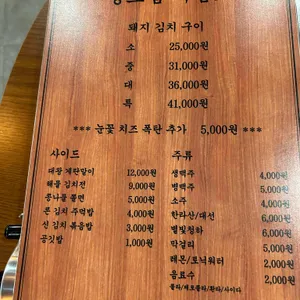 돼지 김치 구이
소 25,000원
중 31,000원
대 36,000원
특 41,000원
*** 눈꽃 치즈 폭탄 추가 5,000원 ***
사이드
대왕 계란말이 12,000원
해물 김치전 9,000원
콩나물 쫄면 5,000원
톤 김치 주먹밥 4,000원
신 김치 볶음밥 3,000원
공깃밥 1,000원
주류
생맥주 4,000원
병맥주 5,000원
소주 4,000원
한라산/대선 6,000원
별빛청하 6,000원
막걸리 5,000원
레몬/토닉워터 2,000원
음료수 2,000원
콜라/제로콜라/환타/사이다